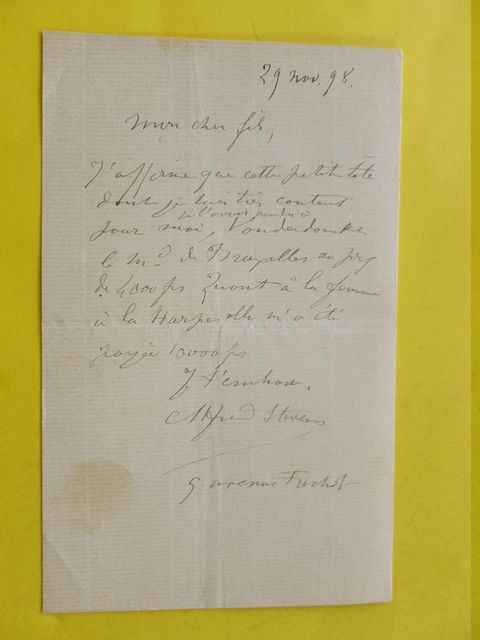 29 nov. 98.
Mon cher fils,
J'affirme que cette petite tête
dont je suis très content
je l'avais vendu à
pour moi, Vanderdonck
le md. de Bruxelles au prix
de 4000 frs Quant à la femme
à la Harpe elle m'a été
payée 10000 frs
Je t'embrasse,
Alfred Stevens
5 avenue Frochot